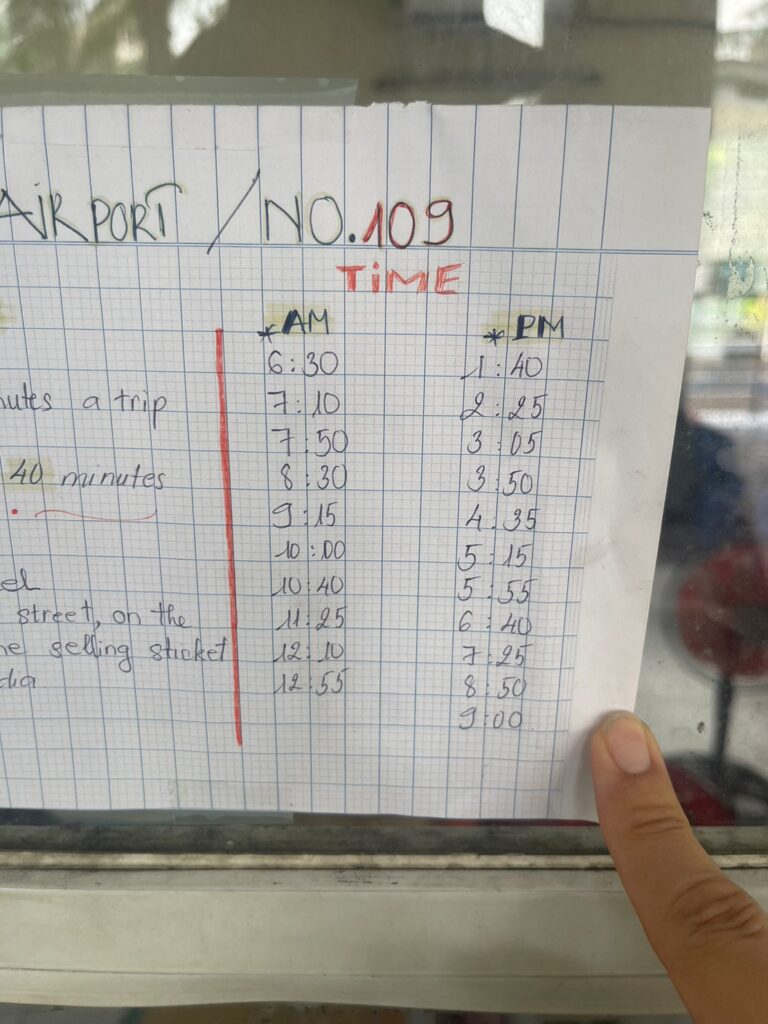 AIRPORT / NO.109
TIME
* AM
* PM
6:30
1:40
a trip
7:10
2:25
7:50
3:05
40 minutes
8:30
3:50
9:15
4:35
10:00
5:15
10:40
5:55
street, on the
11:25
6:40
selling sticket
12:10
7:25
12:55
8:50
9:00